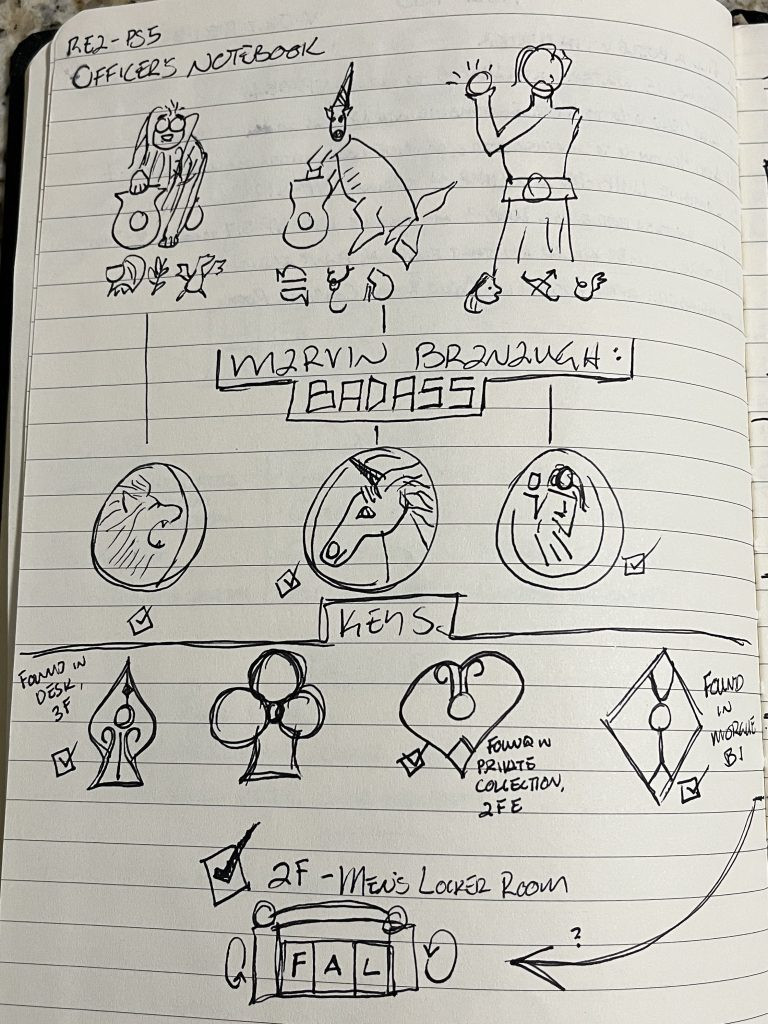 RE2-PS5
OFFICER'S NOTEBOOK
MARVIN BRANAUGH:
BADASS
KEYS.
FOUND IN
DESK,
3F
FOUND IN
PRIVATE
COLLECTION,
2F E
FOUND
IN
MORGUE
B1
2F - MEN'S LOCKER ROOM
F A L
?